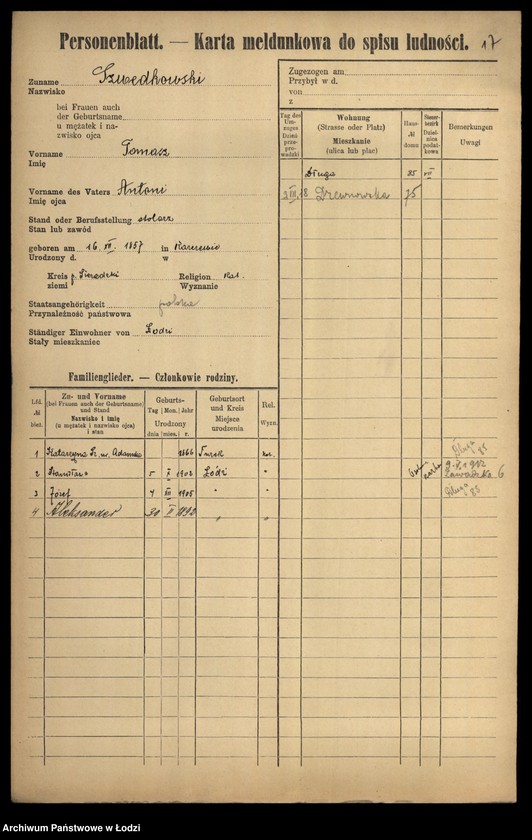 Personenblatt. — Karta meldunkowa do spisu ludności. 17
Zuname Szwedkowski
Nazwisko
bei Frauen auch
der Geburtsname
u mężatek i na-
zwisko ojca
Vorname Tomasz
Imię
Vorname des Vaters Antoni
Imię ojca
Stand oder Berufsstellung stolarz
Stan lub zawód
geboren am 16. XII. 1857 in
Urodzony d. w
Kreis p. Sieradzki Religion Kat.
ziemi Wyznanie
Staatsangehörigkeit polskie
Przynależność państwowa
Ständiger Einwohner von Łodzi
Stały mieszkaniec
Zugezogen am
Przybył w d.
von
z
Tag des Um-zuges Dzień prze-pro-wadzki
Wohnung (Strasse oder Platz) Mieszkanie (ulica lub plac)
Haus-№ domu
Steuer-bezirk Dziel-nica podat-kowa
Bemerkungen Uwagi
Długa 85 VII
2 VII 18 Drewnowska 75
Familienglieder. — Członkowie rodziny.
Lfd. № bież.
Zu- und Vorname (bei Frauen auch der Geburtsname) und Stand Nazwisko i imię (u mężatek i nazwisko ojca) i stan
Geburts- Tag Mon. Jahr Urodzony dnia mies. r.
Geburtsort und Kreis Miejsce urodzenia
Rel. Wyzn.
1 Katarzyna Sz. 1866 Turek Długa 85
2 Stanisław 5 I 1902 Łódź " karta Zawadzka 6
3 Józef 4 III 1905 " " Długa 85
4 Aleksander 30 II 1892 " "
Archiwum Państwowe w Łodzi